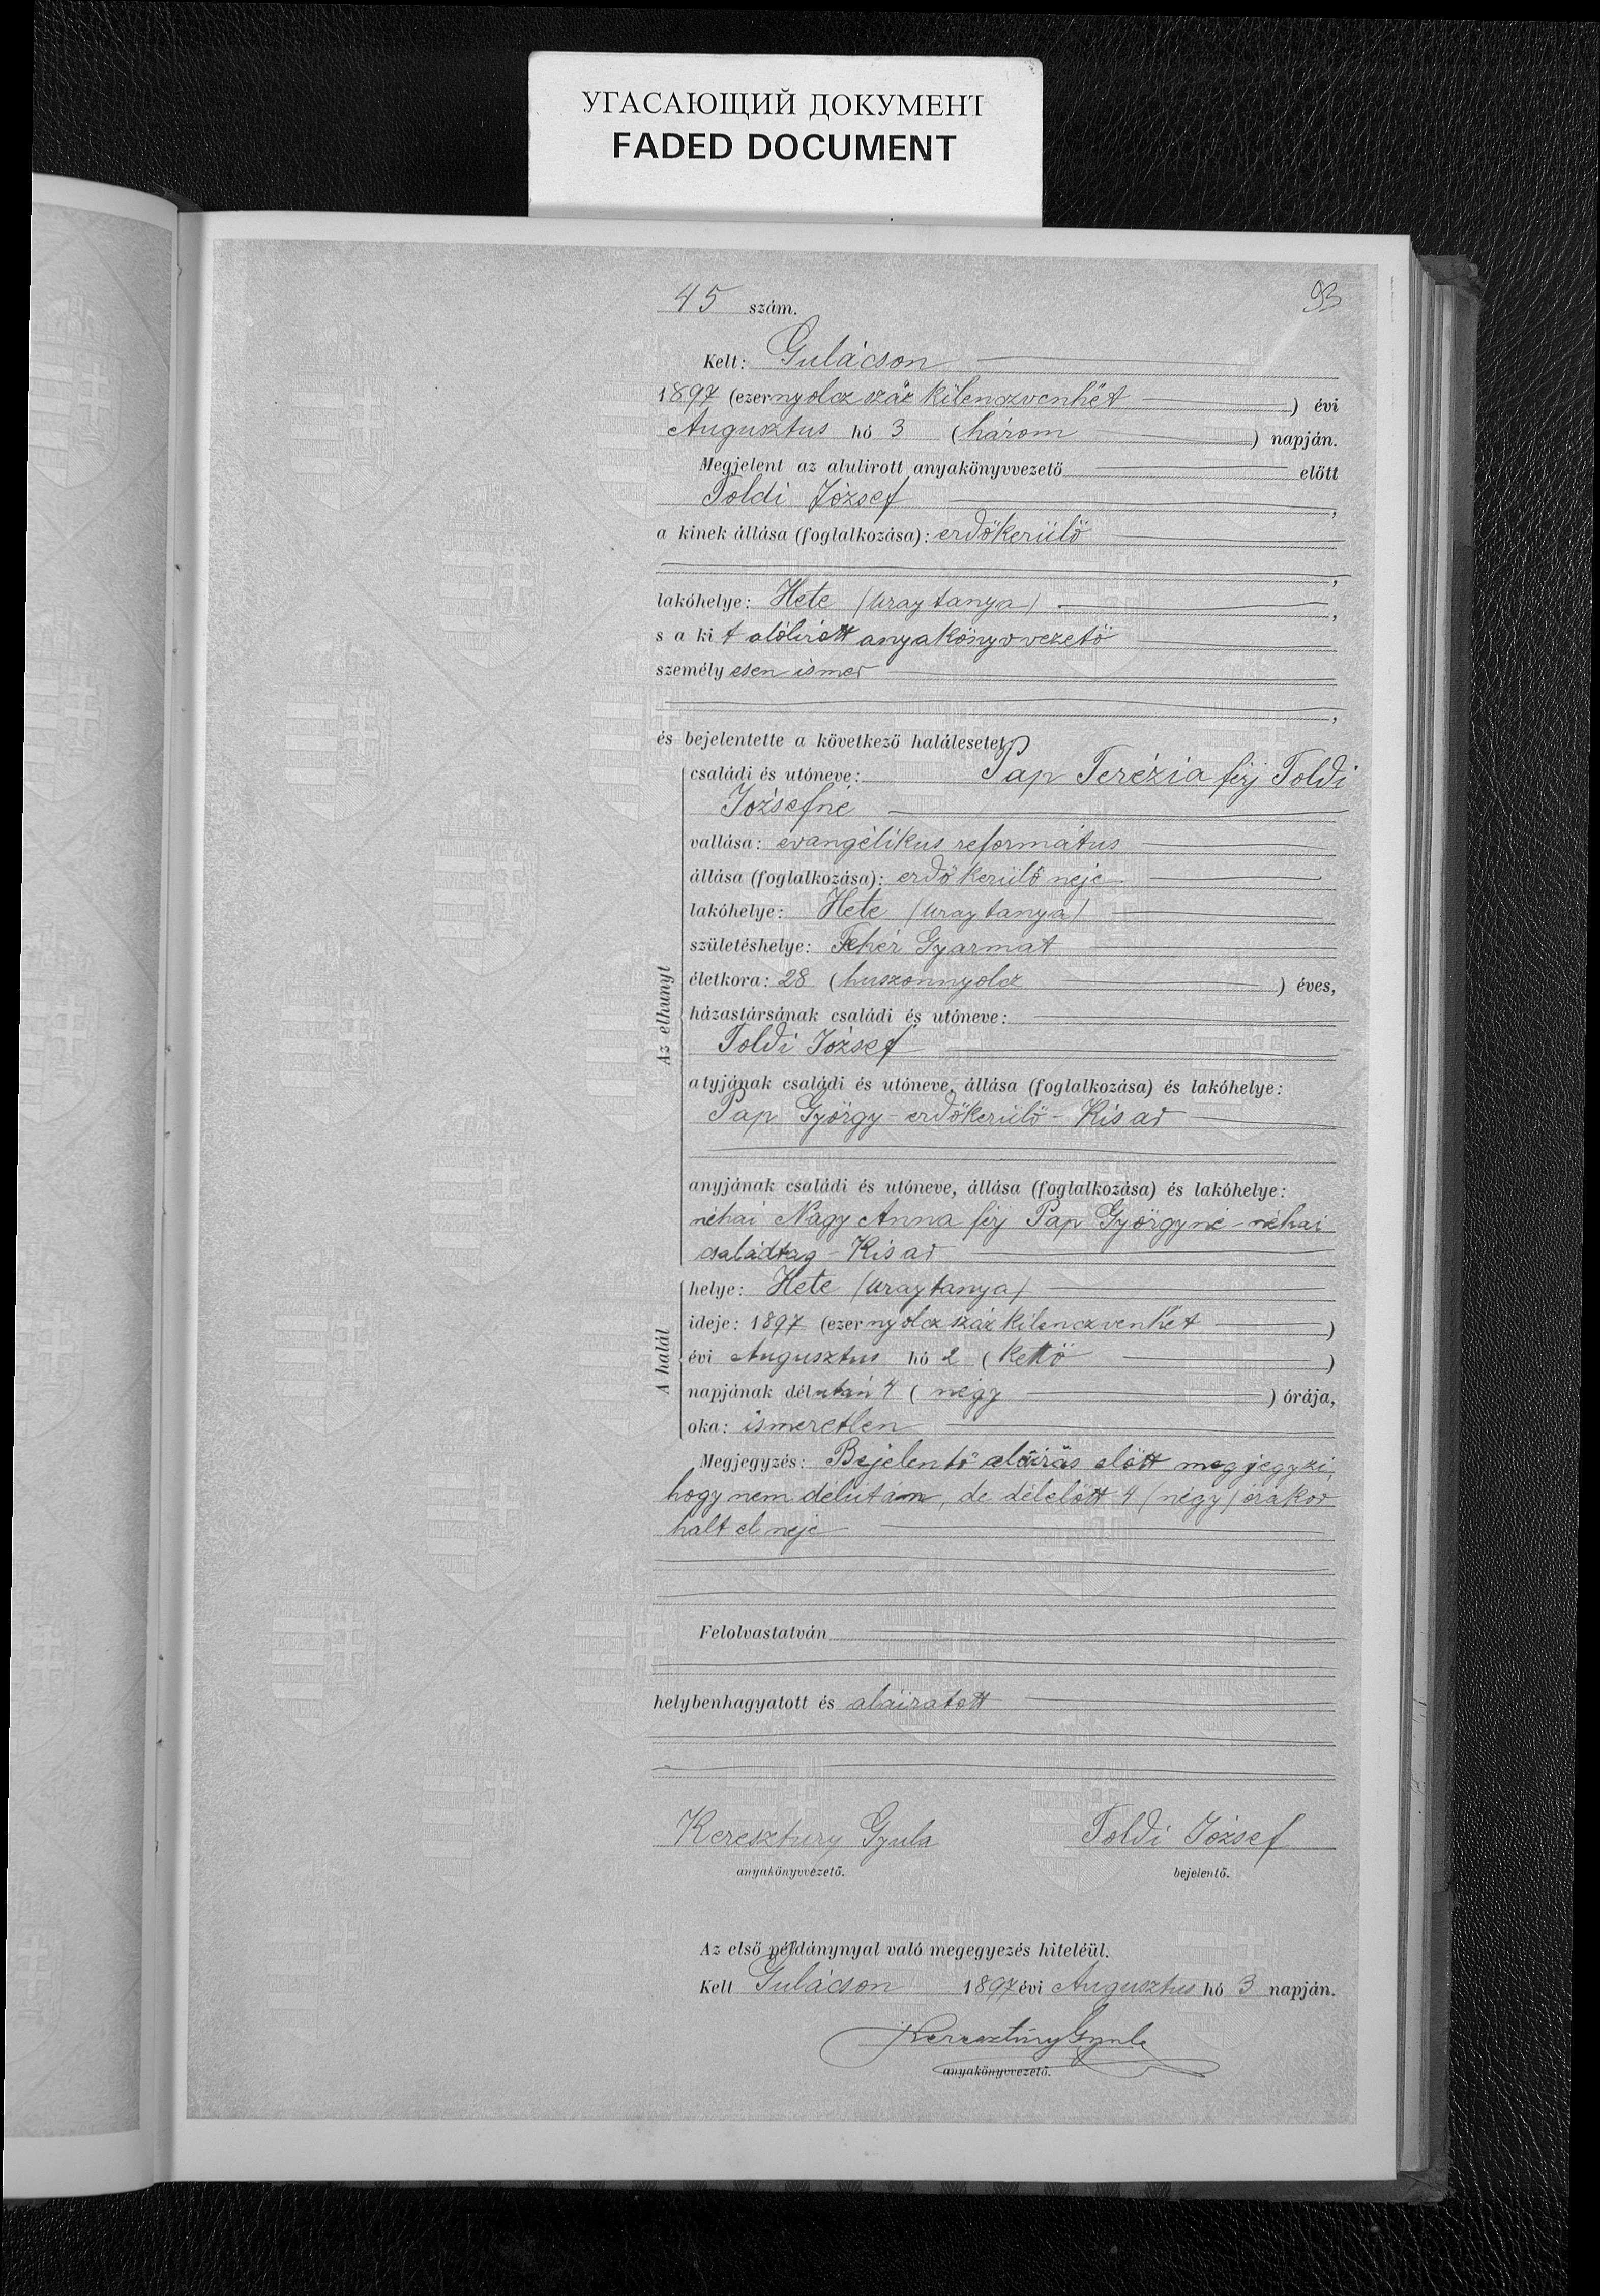 УГАСАЮЩИЙ ДОКУМЕНТ
FADED DOCUMENT
45 szám.
93
Kelt: Gulácson
1897 (ezernyolcz száz kilenczvenhét) évi
Augusztus hó 3 (három) napján.
Megjelent az alulirott anyakönyvvezető előtt
Toldi József,
a kinek állása (foglalkozása): erdőkerülő
,
lakóhelye: Hete (uraytanya),
s a kit alólirott anyakönyvvezető
személyesen ismer
,
és bejelentette a következő halálesetet:
Az elhunyt
családi és utóneve: Pap Terézia férj Toldi
Józsefné
vallása: evangélikus református
állása (foglalkozása): erdőkerülő neje
lakóhelye: Hete (uraytanya)
születéshelye: Fehér Gyarmat
életkora: 28 (huszonnyolcz) éves,
házastársának családi és utóneve:
Toldi József
atyjának családi és utóneve, állása (foglalkozása) és lakóhelye:
Pap György - erdőkerülő - Kisar
anyjának családi és utóneve, állása (foglalkozása) és lakóhelye:
néhai Nagy Anna férj Pap Györgyné - néhai
családtag - Kisar
A halál
helye: Hete (uraytanya)
ideje: 1897 (ezernyolcz száz kilenczvenhét)
évi Augusztus hó 2 (kettő)
napjának délután 4 (négy) órája,
oka: ismeretlen
Megjegyzés: Bejelentő aláirás előtt megjegyzi,
hogy nem délután, de délelőtt 4 (négy) órakor
halt el neje
Felolvastatván
helybenhagyatott és aláiratott
Keresztury Gyula
Toldi József
anyakönyvvezető.
bejelentő.
Az első példánynyal való megegyezés hiteléül.
Kelt Gulácson 1897 évi Augusztus hó 3 napján.
Keresztúry Gyula
anyakönyvvezető.